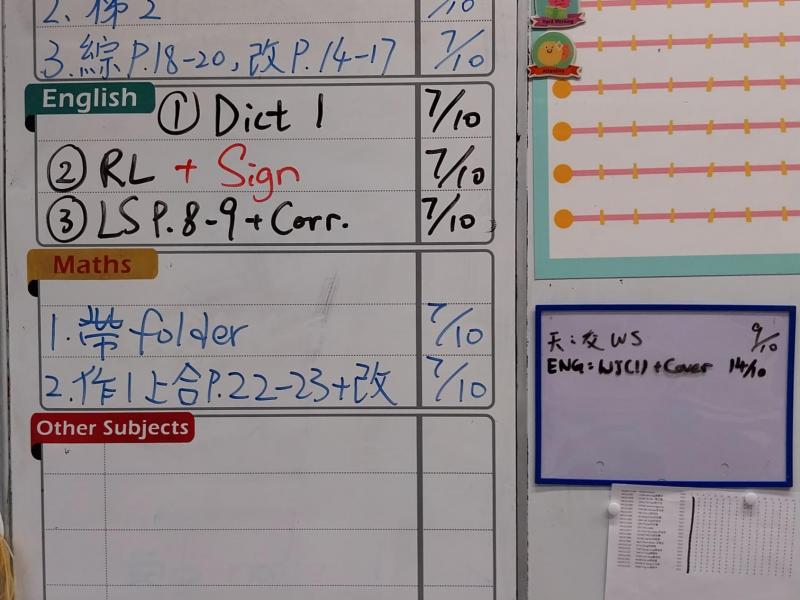 2. 默 2 7/10
3. 綜P.18-20, 改P.14-17 7/10
English
① Dict 1 7/10
② RL + Sign 7/10
③ LS P.8-9 + Corr. 7/10
Maths
1. 帶 folder 7/10
2. 作1上合P.22-23+改 7/10
Other Subjects
Hard Working
Attentive
天: 交 WS 9/10
ENG = WS(1) + Cover 14/10